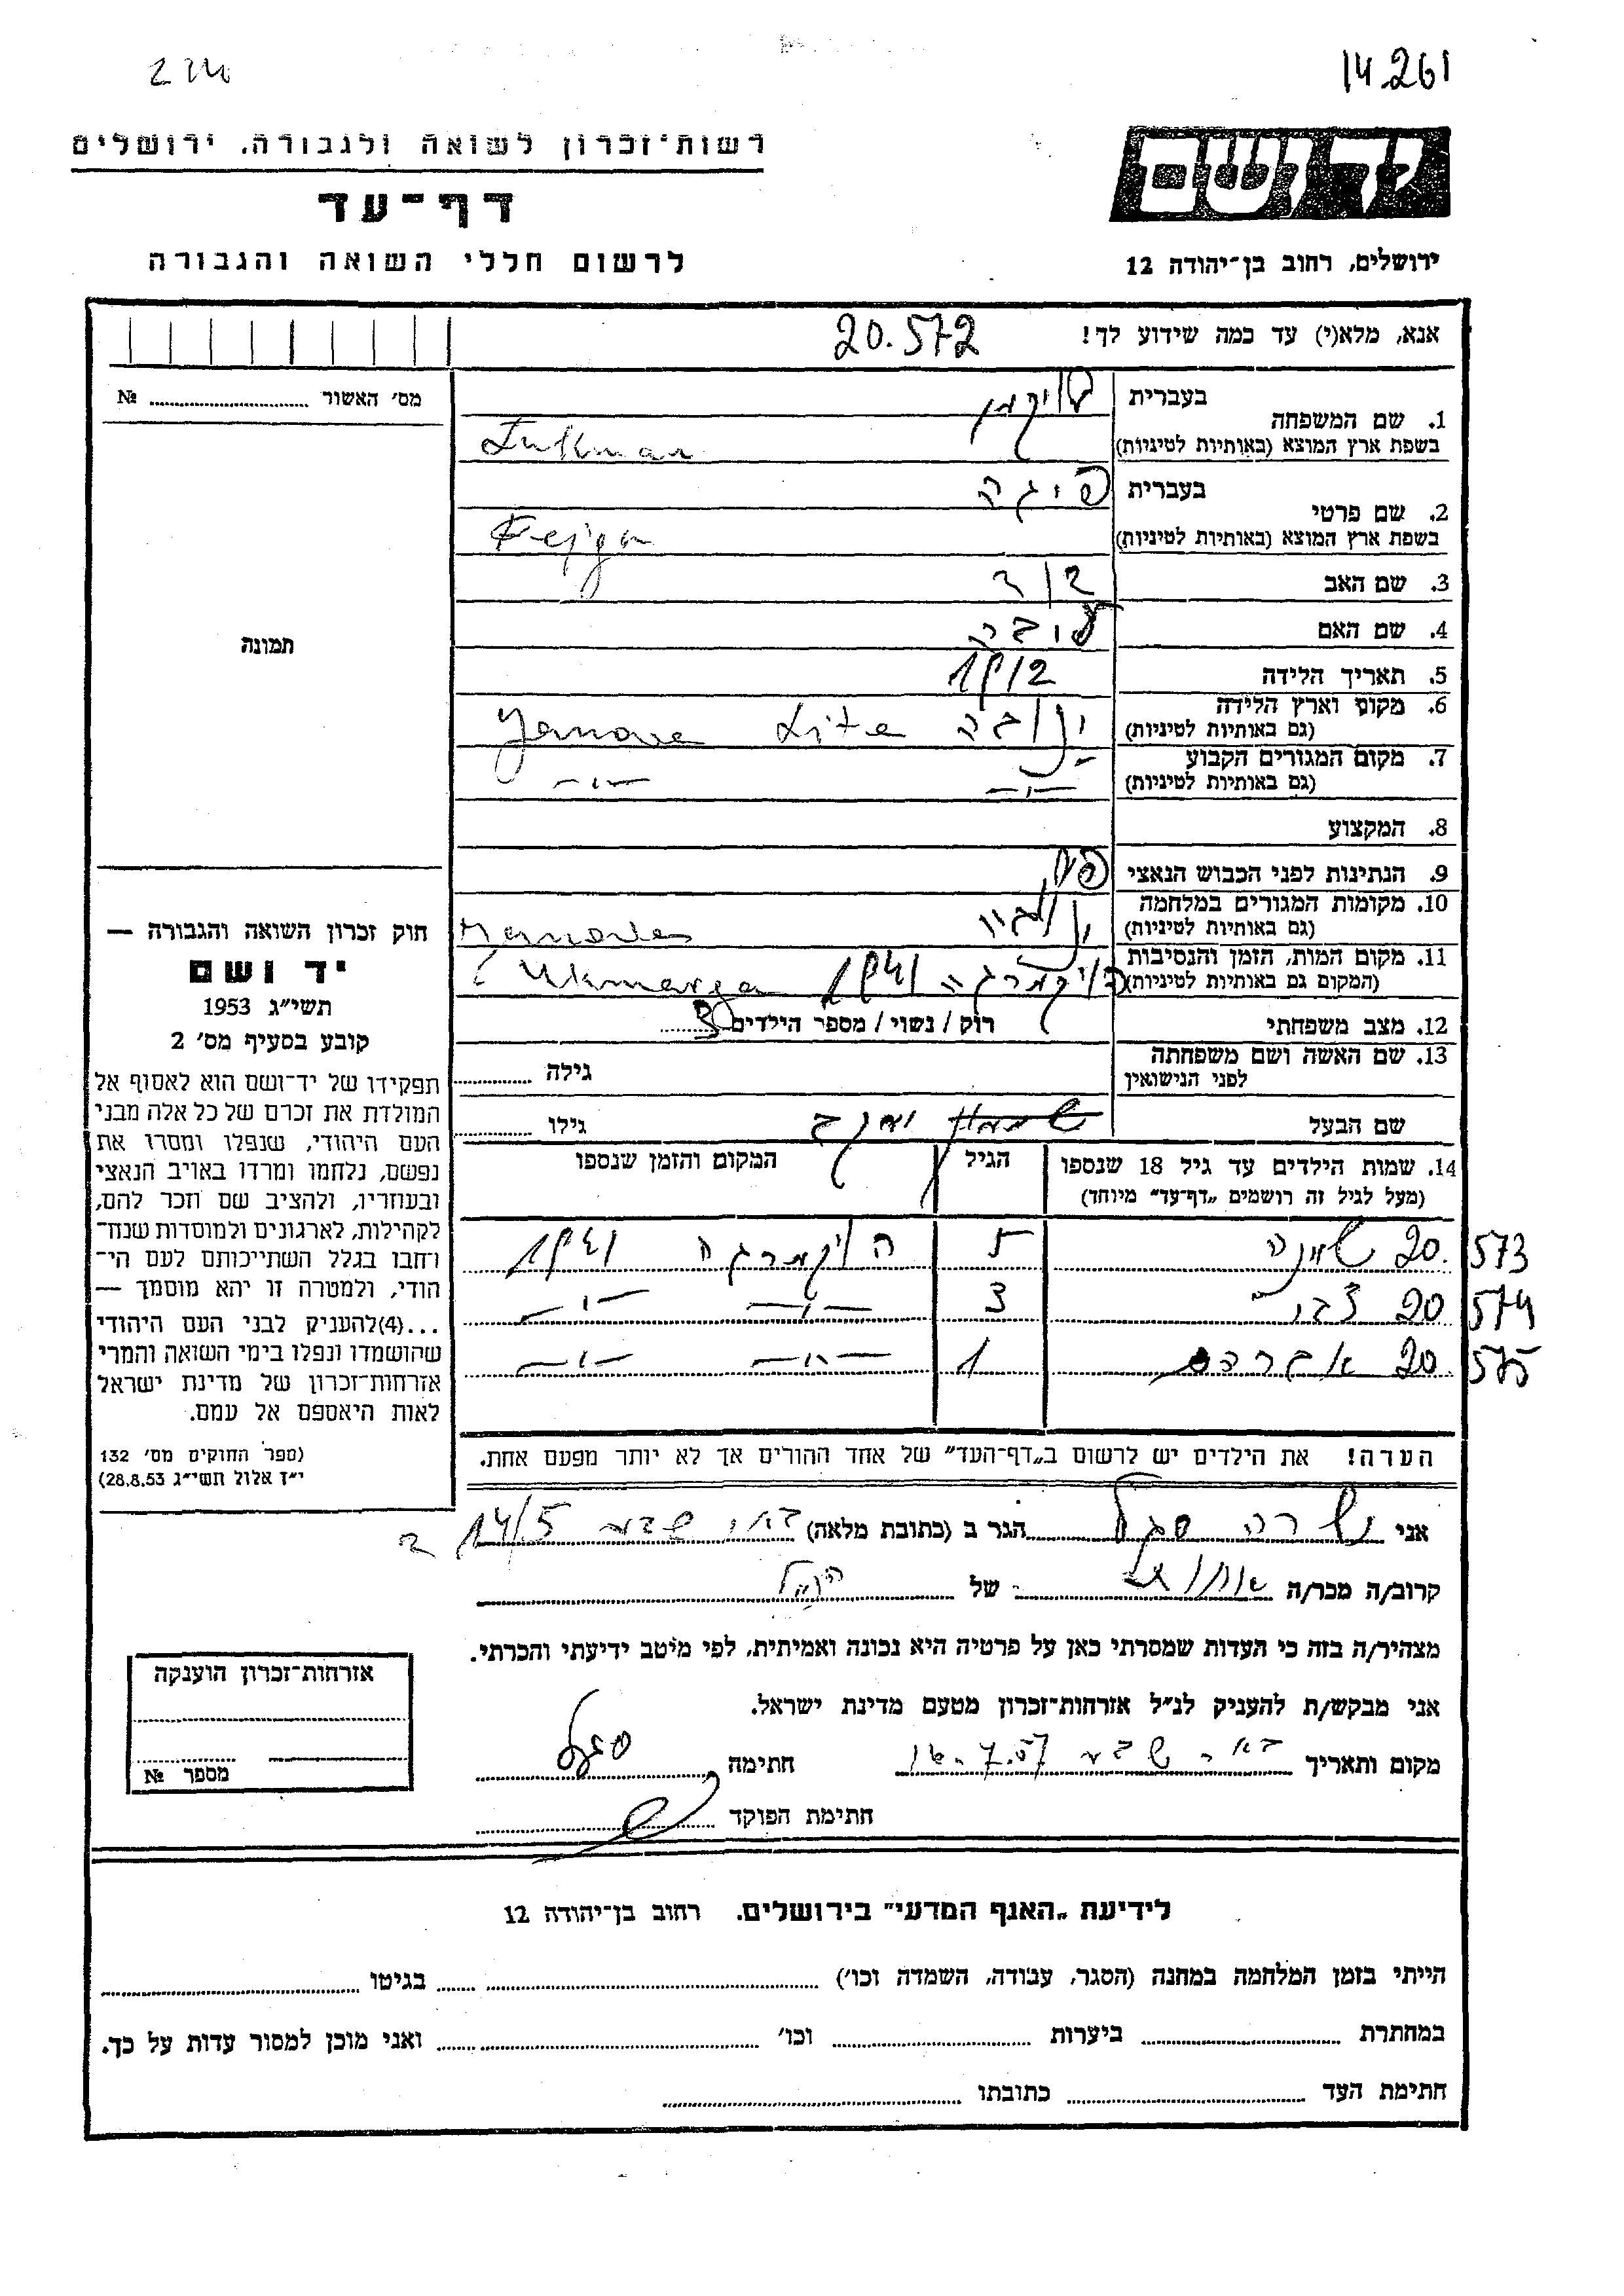 14.261
רשות־זכרון לשואה ולגבורה, ירושלים
יד ושם
דף־עד
לרשום חללי השואה והגבורה
ירושלים, רחוב בן־יהודה 12
אנא, מלא(י) עד כמה שידוע לך!
20.572
מס' האשור № 
1. שם המשפחה
בעברית
בשפת ארץ המוצא (באותיות לטיניות)
2. שם פרטי
בעברית פיגה
בשפת ארץ המוצא (באותיות לטיניות) Fejga
3. שם האב
4. שם האם
5. תאריך הלידה 1912
6. מקום וארץ הלידה
(גם באותיות לטיניות) ינובה Lite
7. מקום המגורים הקבוע
(גם באותיות לטיניות) —״— —״—
8. המקצוע
9. הנתינות לפני הכבוש הנאצי
10. מקומות המגורים במלחמה
(גם באותיות לטיניות)
11. מקום המות, הזמן והנסיבות
(המקום גם באותיות לטיניות) 1941 Ukmerga
12. מצב משפחתי רוק / נשוי / מספר הילדים 3
13. שם האשה ושם משפחתה
לפני הנישואין גילה
שם הבעל גילו
14. שמות הילדים עד גיל 18 שנספו
(מעל לגיל זה רושמים „דף־עד" מיוחד)
הגיל
המקום והזמן שנספו
20. 573 5 1941
20 574 3 —״— —״—
20 575 אברהם 1 —״— —״—
הערה! את הילדים יש לרשום ב„דף־העד" של אחד ההורים אך לא יותר מפעם אחת.
תמונה
חוק זכרון השואה והגבורה —
יד ושם
תשי״ג 1953
קובע בסעיף מס' 2
תפקידו של יד־ושם הוא לאסוף אל
המולדת את זכרם של כל אלה מבני
העם היהודי, שנפלו ומסרו את
נפשם, נלחמו ומרדו באויב הנאצי
ובעוזריו, ולהציב שם וזכר להם,
לקהילות, לארגונים ולמוסדות שנח־
רחבו בגלל השתייכותם לעם הי־
הודי, ולמטרה זו יהא מוסמך —
...(4)להעניק לבני העם היהודי
שהושמדו ונפלו בימי השואה והמרי
אזרחות־זכרון של מדינת ישראל
לאות היאספם אל עמם.
(ספר החוקים מס' 132
י״ז אלול תשי״ג 28.8.53)
אני שרה סגל הגר ב (כתובת מלאה) באר שבע 14/5
קרוב/ה מכר/ה של
מצהיר/ה בזה כי העדות שמסרתי כאן על פרטיה היא נכונה ואמיתית, לפי מיטב ידיעתי והכרתי.
אני מבקש/ת להעניק לנ״ל אזרחות־זכרון מטעם מדינת ישראל.
מקום ותאריך באר שבע חתימה סגל
חתימת הפוקד
אזרחות־זכרון הוענקה
מספר №
לידיעת „האגף המדעי" בירושלים. רחוב בן־יהודה 12
הייתי בזמן המלחמה במחנה (הסגר, עבודה, השמדה וכו') בגיטו
במחתרת ביערות וכו' ואני מוכן למסור עדות על כך.
חתימת העד כתובתו